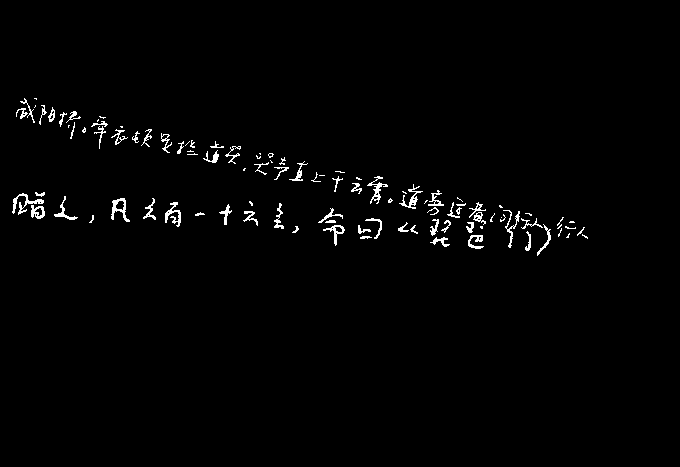 咸阳桥。牵衣顿足拦道哭，哭声直上干云霄。道旁过者问行人，行人
赠之，凡六百一十六言，命曰《琵琶行》